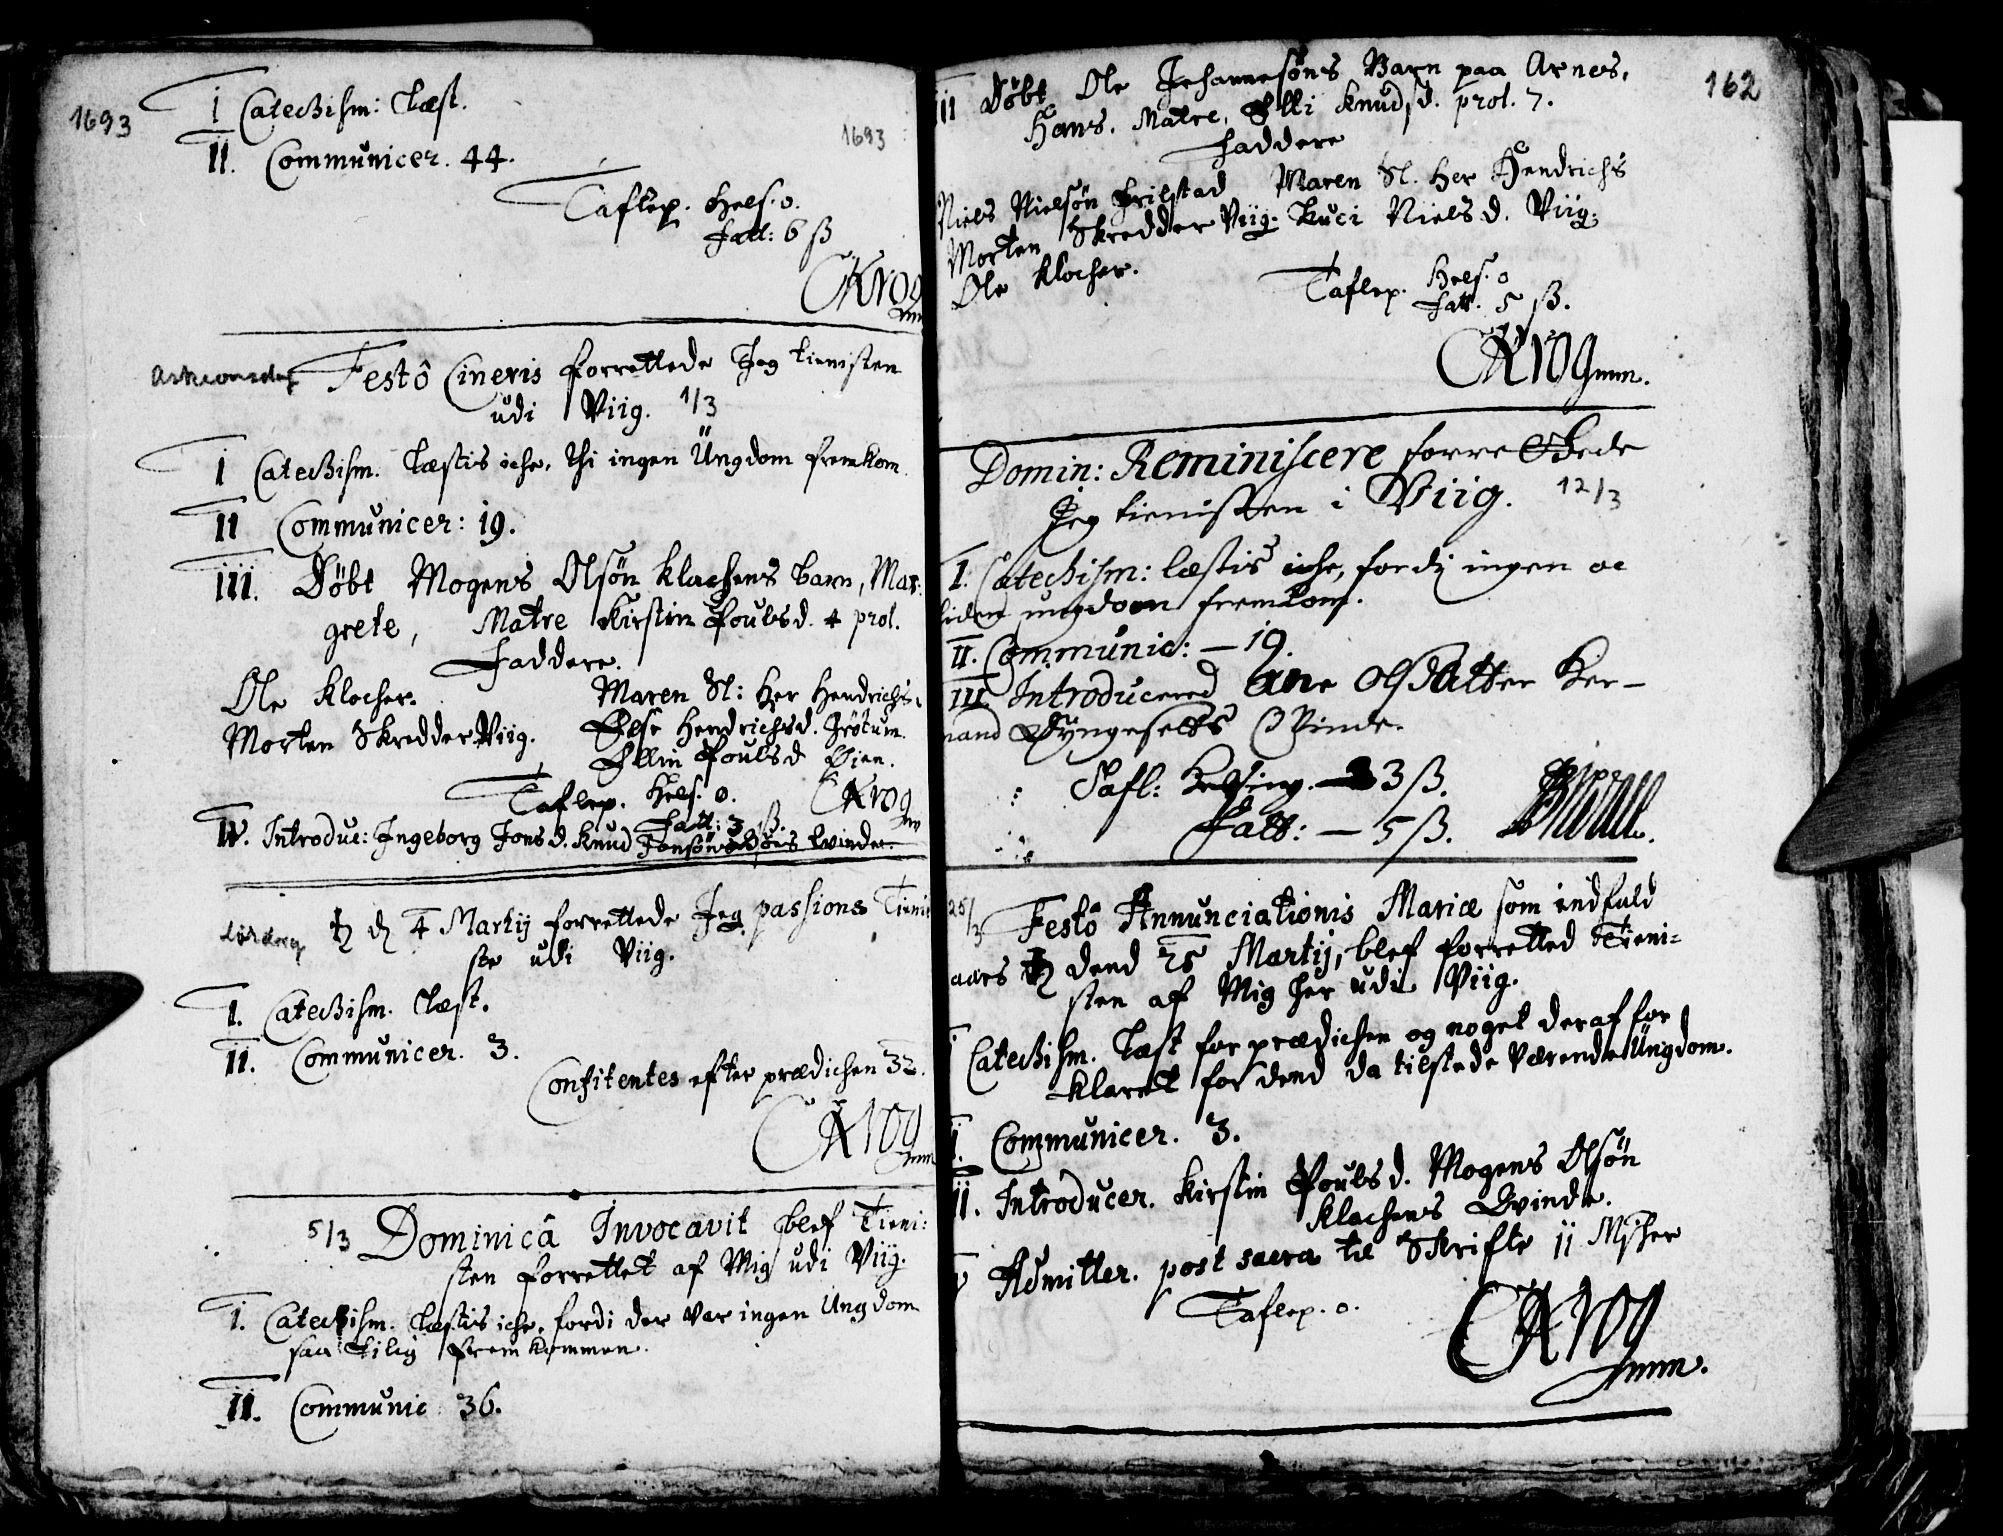 1693
I Catechism: Læst.
1693
II. Communicer. 44.
Taflep. Hels: 0.
Fatt: 6 ß
CKrog
mm
Askeonsdag Festô Cineris forrettede Jeg tienisten
udi Viig. 1/3
I Catechism. Læstis iche, thi ingen Ungdom fremkom.
II Communicer: 19.
III. Døbt Mogens Olsøn Klachens barn, Mar:
grete, Matre Kirstin Poulsd. 4 prol.
Faddere.
Ole Klocher. Maren Sl: Her Hendrichs.
Morten Skredder Viig. Else Hendrichsd. Grötum.
Ellin Poulsd Öien.
Taflep. Hels. 0. CKrog
Fatt: 3 ß. mm
IV. Introduc: Ingeborg Jonsd. Knud Jonsøns Qvinde.
Lørdag ♄ d 4 Martij forrettede Jeg passions Tieni
ste udi Viig.
I. Catechism. Læst.
II. Communicer. 3.
Confitentes efter prædichen 32.
CKrog
mm
5/3 Dominicâ Invocavit blef Tieni:
sten forrettet af Mig udi Viig.
I. Catechism. Læstis iche, fordi der var ingen Ungdom
saa tilig frem kommen.
II. Communic 36.
162
III Døbt Ole Johannesøns Barn paa Arnes,
Hans. Matre, Elli Knudsd. prol. 7.
Faddere
Niels Nielsøn Frilstad Maren Sl. Her Hendrichs
Morten Skredder Viig. Luci Nielsd. Viig.
Ole Klocher.
Taflep. Hels. 0
Fatt. 5 ß.
CKrog mm.
Domin: Reminiscere forrettede
Jeg tienisten i Viig. 12/3
I. Catechism: læstis iche, fordj ingen oc
liden ungdom fremkom.
II. Communic: – 19.
III. Introducered Ane Olsdatter Her–
mand Dyngeseths Qvinde.
Tafl: Helsing. – 3 ß.
Fatt: – 5 ß.
25/3 Festô Annunciationis Mariæ som indfald
aars ♄ dend 25 Martij, blef forretted Tieni=
sten af Mig her udi Viig.
I Catechism. Læst for prædichen og noget deraf for
klaret for dend da tilstede værende Ungdom.
II. Communicer. 3.
III. Introducer. Kirstin Poulsd. Mogens Olsøn
Klachens Qvinde.
Admitter. post sacra til Skrifte 11 Msher
Taflep. 0.
CKrog
mm.